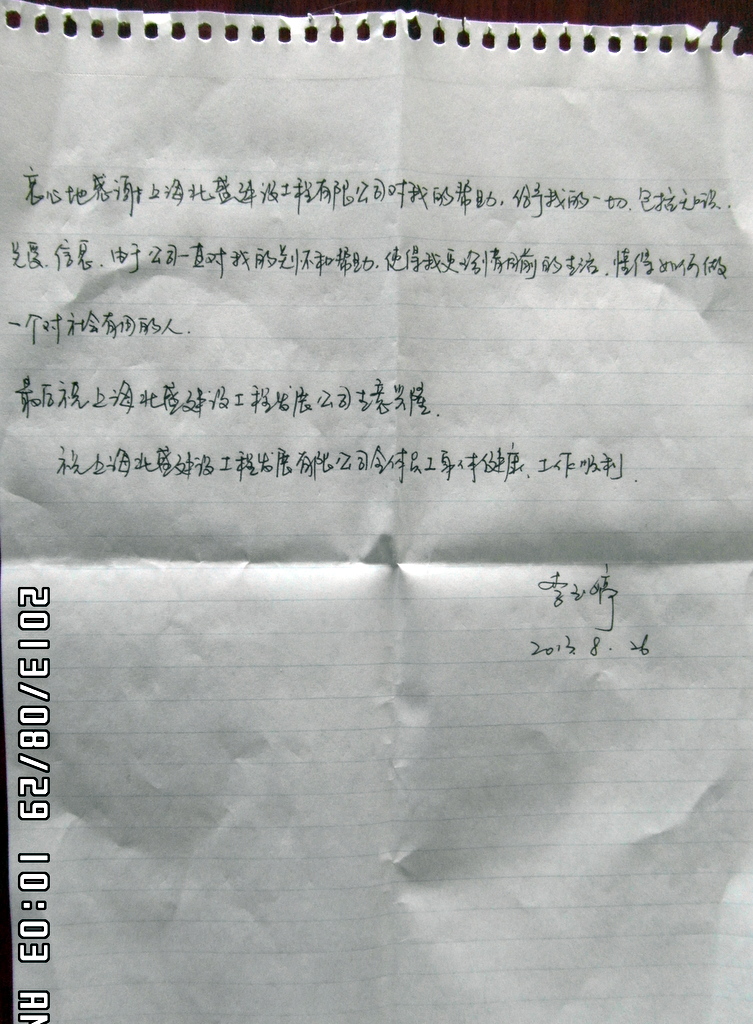 衷心地感谢上海北盛建设工程有限公司对我的帮助,给予我的一切.包括无谈.
关爱.信息.由于公司一直对我的关怀和帮助.使得我更珍惜目前的生活.懂得如何做
一个对社会有用的人.
最后祝上海北盛建设工程发展公司生意兴隆.
祝上海北盛建设工程发展有限公司全体员工身体健康、工作顺利.
李玉婷
2013.8.26
2013/08/29 10:03 AM